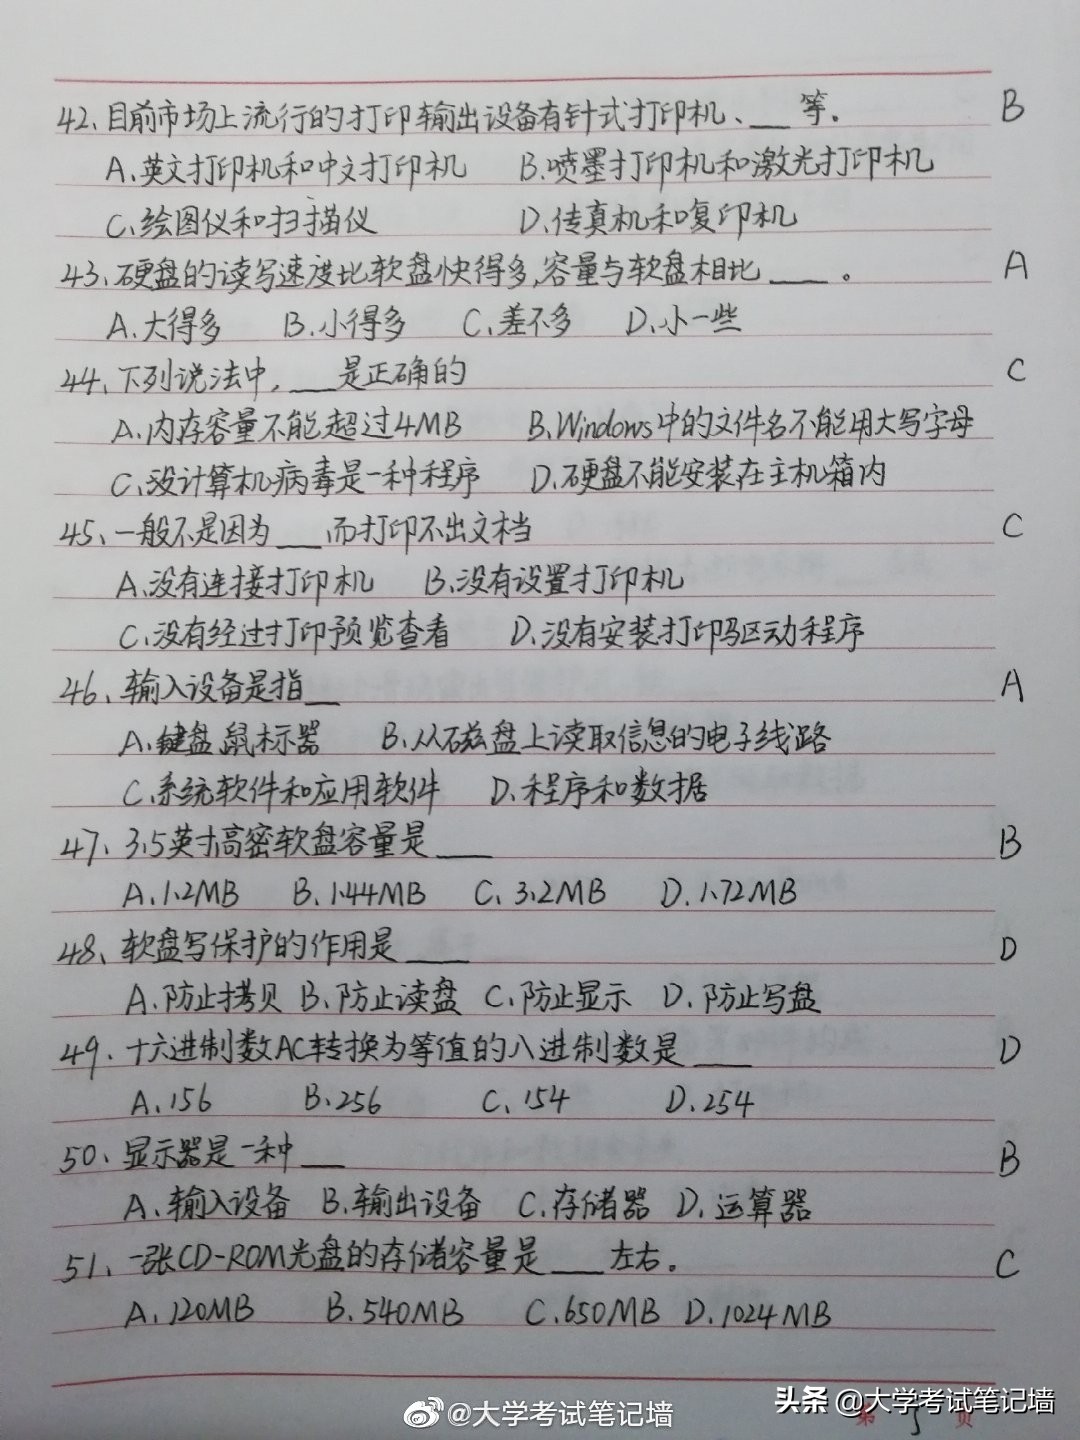 42、目前市场上流行的打印输出设备有针式打印机、___等. B
A、英文打印机和中文打印机 B、喷墨打印机和激光打印机
C、绘图仪和扫描仪 D、传真机和复印机
43、硬盘的读写速度比软盘快得多,容量与软盘相比____。 A
A、大得多 B、小得多 C、差不多 D、小一些
44、下列说法中,___是正确的 C
A、内存容量不能超过4MB B、Windows中的文件名不能用大写字母
C、没计算机病毒是一种程序 D、硬盘不能安装在主机箱内
45、一般不是因为___而打印不出文档 C
A、没有连接打印机 B、没有设置打印机
C、没有经过打印预览查看 D、没有安装打印驱动程序
46、输入设备是指__ A
A、键盘、鼠标示器 B、从磁盘上读取信息的电子线路
C、系统软件和应用软件 D、程序和数据
47、3.5英寸高密软盘容量是____ B
A.1.2MB B.1.44MB C.3.2MB D.1.72MB
48、软盘写保护的作用是____ D
A.防止拷贝 B.防止读盘 C.防止显示 D.防止写盘
49、十六进制数AC转换为等值的八进制数是____ D
A、156 B、256 C、154 D、254
50、显示器是一种___ B
A、输入设备 B、输出设备 C、存储器 D、运算器
51、一张CD-ROM光盘的存储容量是____左右。 C
A、120MB B.540MB C.650MB D.1024MB
@大学考试笔记墙
头条 @大学考试笔记墙
第 5 页